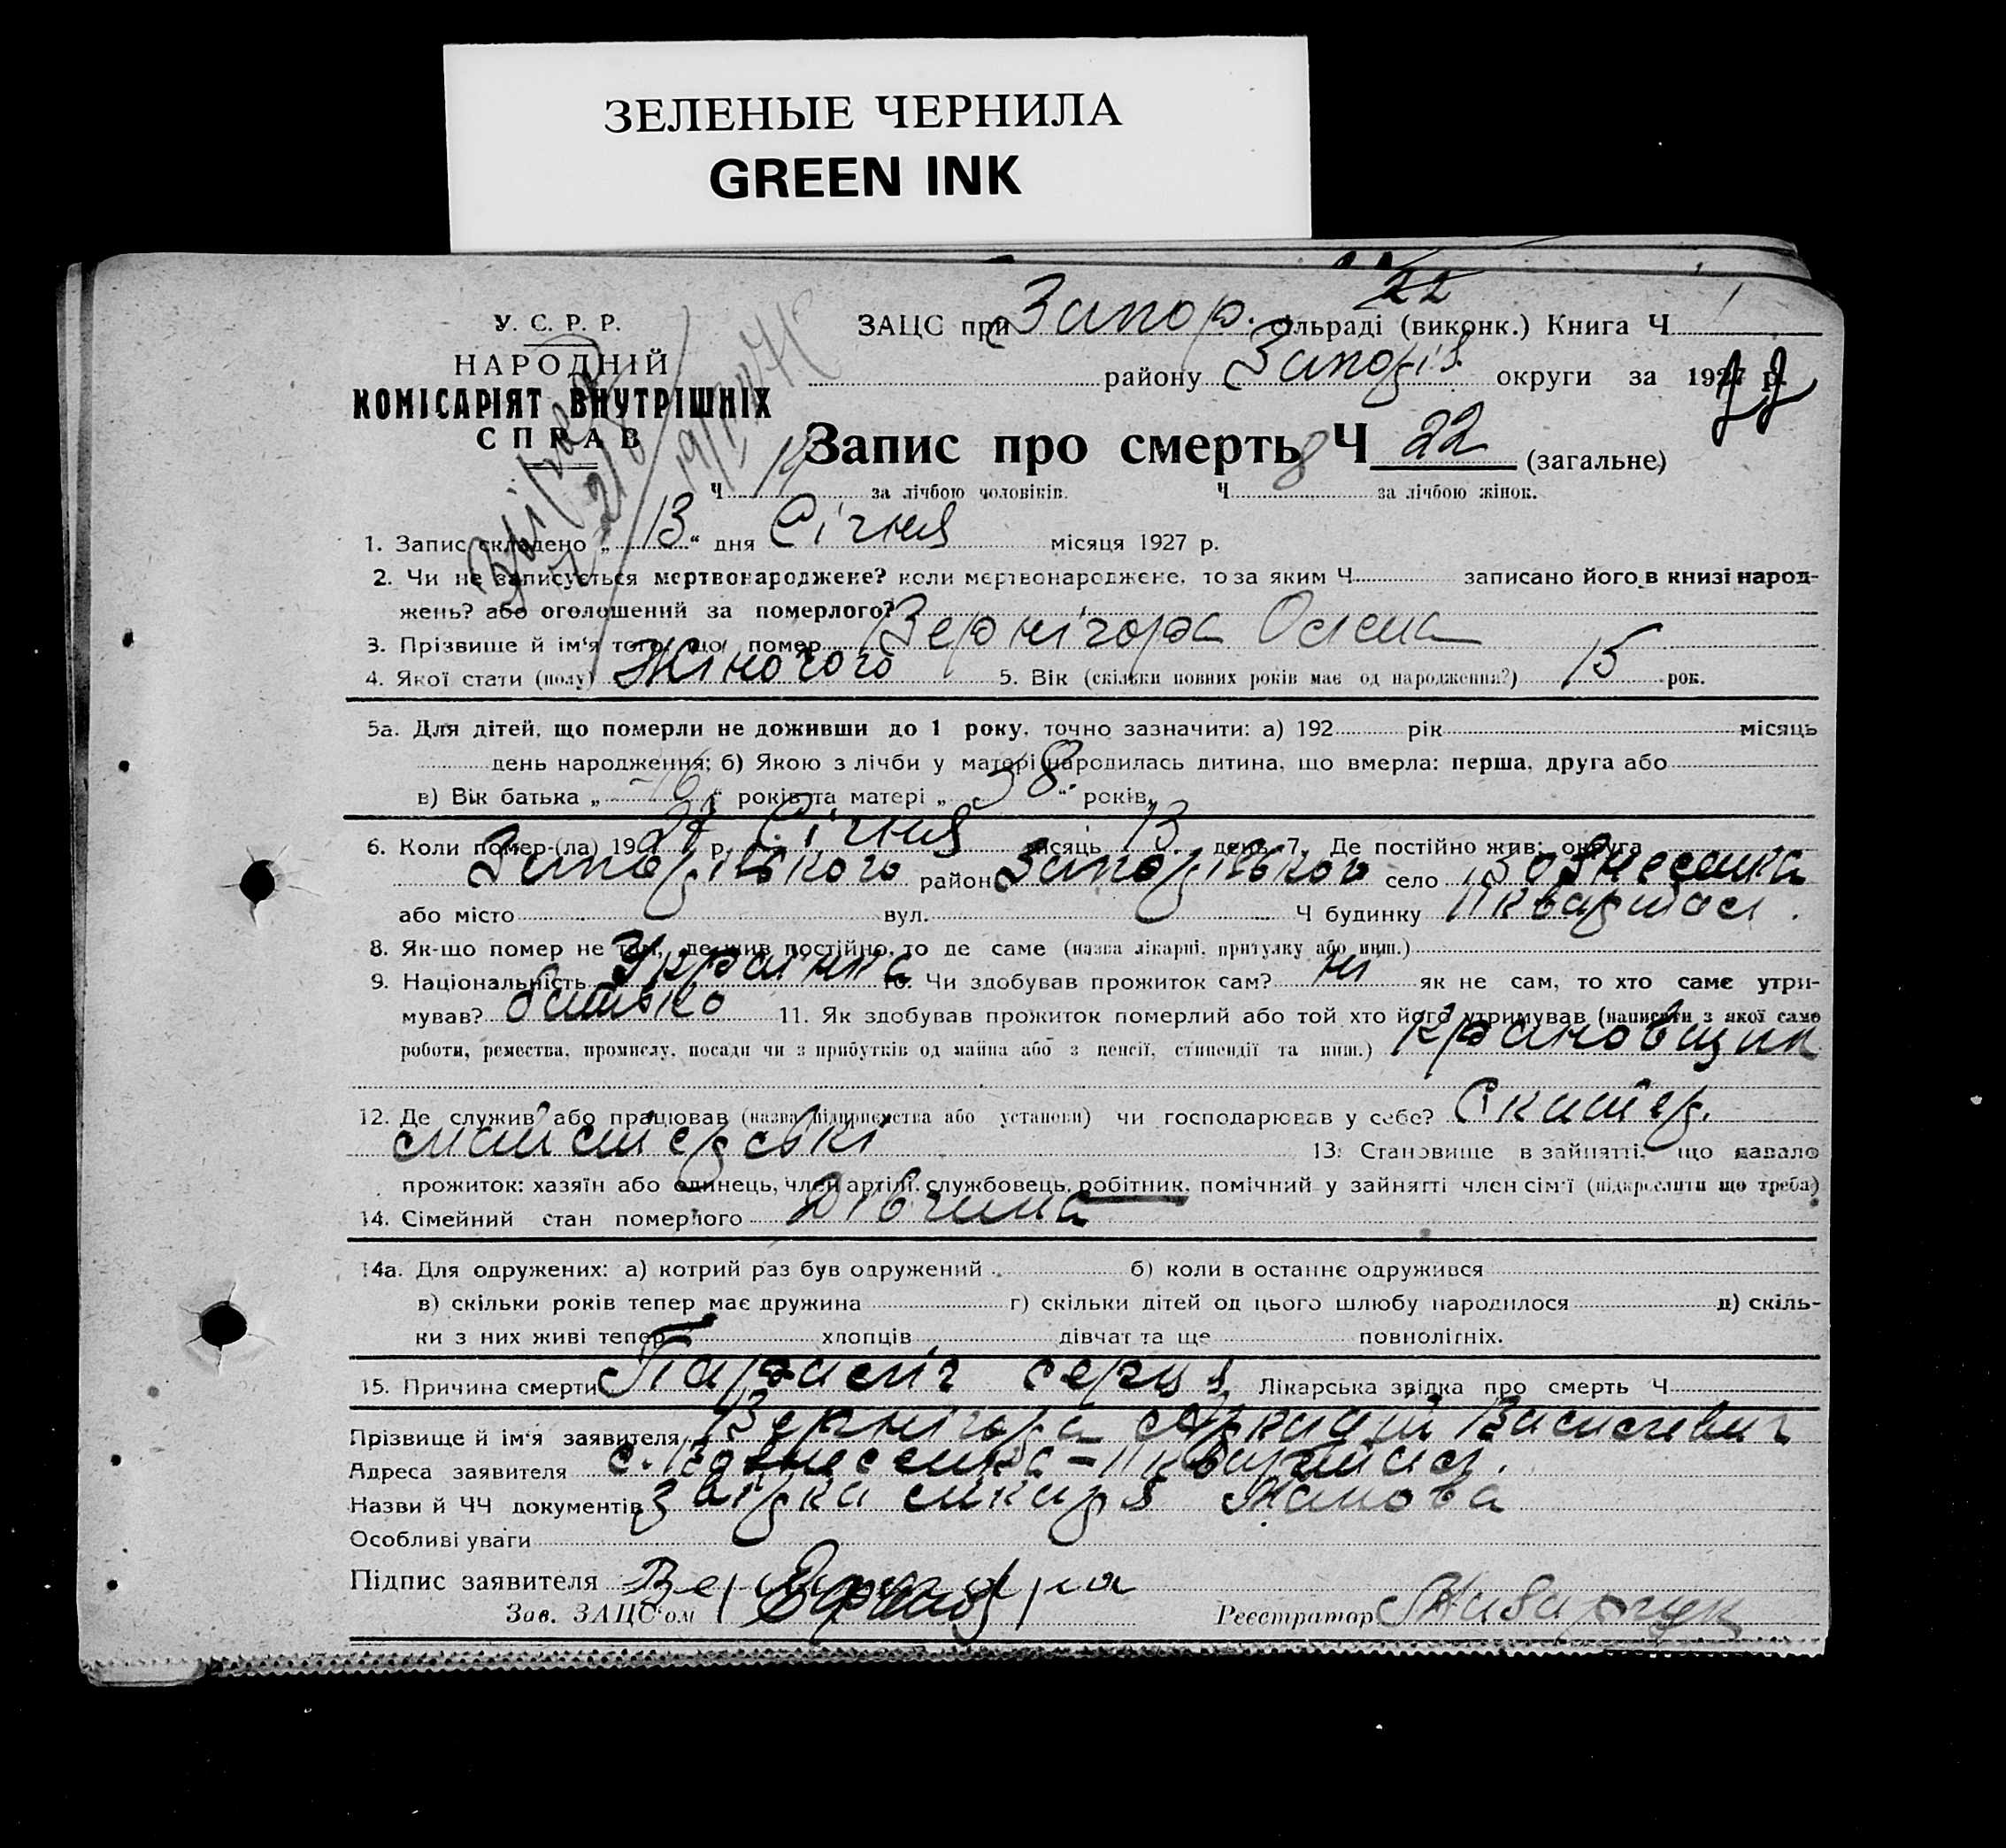 ЗЕЛЕНЫЕ ЧЕРНИЛА
GREEN INK
22
У. С. Р. Р.
НАРОДНІЙ
КОМІСАРІЯТ ВНУТРІШНІХ
СПРАВ
ЗАЦС при Запор. сільраді (виконк.) Книга Ч
району Запоріз. округи за 1927 р.
Запис про смерть Ч 22 (загальне)
Ч 14 за лічбою чоловіків. Ч 8 за лічбою жінок.
1. Запис складено „ 13 “ дня Січня місяця 1927 р.
2. Чи не записується мертвонароджене? коли мертвонароджене, то за яким Ч записано його в книзі народ-
жень? або оголошений за померлого?
3. Прізвище й ім‘я того, що помер Вернігора Олена
4. Якої стати (полу) Жіночого 5. Вік (скільки повних років має од народження?) 15 рок.
5а. Для дітей, що померли не доживши до 1 року, точно зазначити: а) 192 рік місяць
день народження; б) Якою з лічби у матері народилась дитина, що вмерла: перша, друга або
в) Вік батька „ “ років та матері „ 38 “ років.
6. Коли помер-(ла) 1927 р. Січня місяць 13 день. 7. Де постійно жив: округа
Запорізького район Запорізького село Вознесенка
або місто вул. Ч будинку 11 квартал.
8. Як-що помер не там, де жив постійно, то де саме (назва лікарні, притулку або инш.)
9. Національність Українка 10. Чи здобував прожиток сам? ні як не сам, то хто саме утри-
мував? батько 11. Як здобував прожиток померлий або той хто його утримував (написати з якої само
роботи, ремества, промислу, посади чи з прибутків од майна або з пенсії, стипендії та инш.) Крановщик
12. Де служив або працював (назва підприємства або установи) чи господарював у себе? Єкатер.
майстерські 13. Становище в зайнятті, що давало
прожиток: хазяїн або одинець, член артілі, службовець, робітник, помічний у зайнятті член сім‘ї (підкреслити що треба)
14. Сімейний стан померлого Дівчина
14а. Для одружених: а) котрий раз був одружений б) коли в останнє одружився
в) скільки років тепер має дружина г) скільки дітей од цього шлюбу народилося д) скіль-
ки з них живі тепер хлопців дівчат та ще повнолітніх.
15. Причина смерти Параліч серця Лікарська звідка про смерть Ч
Прізвище й ім‘я заявителя Вернігора Аркадій Васильевич
Адреса заявителя с. Вознесенка - 11 квартал.
Назви й ЧЧ документів звідка лікаря Панова
Особливі уваги
Підпис заявителя
Зав. ЗАЦС‘ом Реєстратор